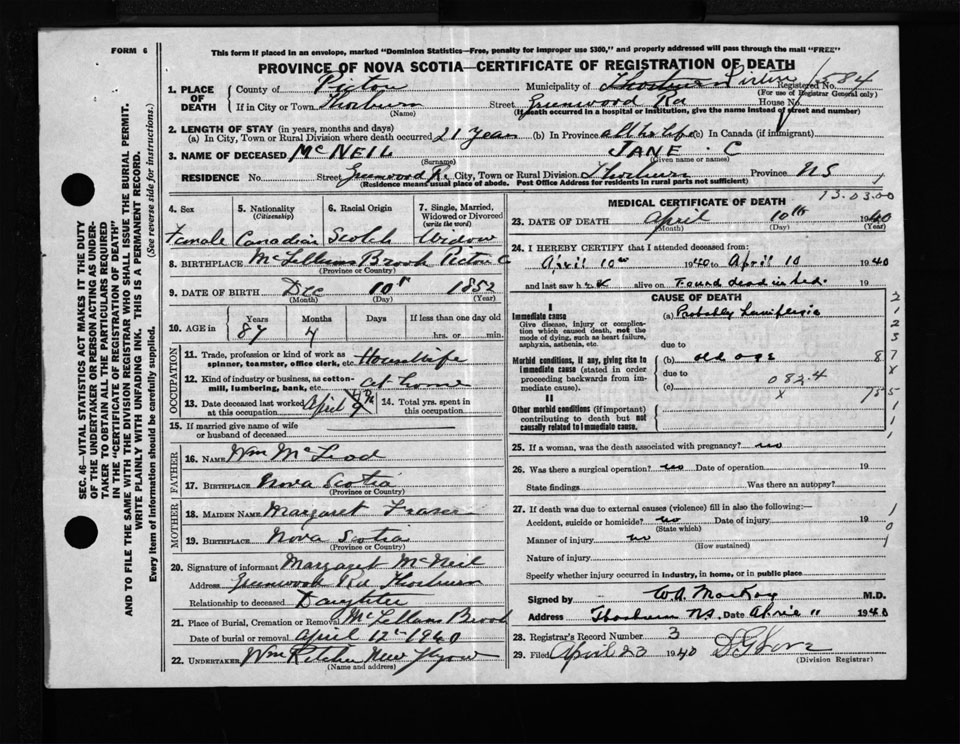 FORM 6
This form if placed in an envelope, marked "Dominion Statistics—Free, penalty for improper use $300," and properly addressed will pass through the mail "FREE"
PROVINCE OF NOVA SCOTIA—CERTIFICATE OF REGISTRATION OF DEATH
SEC. 46—VITAL STATISTICS ACT MAKES IT THE DUTY
OF THE UNDERTAKER OR PERSON ACTING AS UNDER-
TAKER TO OBTAIN ALL THE PARTICULARS REQUIRED
IN THE "CERTIFICATE OF REGISTRATION OF DEATH"
AND TO FILE THE SAME WITH THE DIVISION REGISTRAR WHO SHALL ISSUE THE BURIAL PERMIT.
WRITE PLAINLY WITH UNFADING INK. THIS IS A PERMANENT RECORD.
Every item of information should be carefully supplied. (See reverse side for instructions.)
1. PLACE OF DEATH County of Pictou Municipality of Thorburn Registered No. 1584
(For use of Registrar General only)
If in City or Town Thorburn Street Greenwood Rd House No.
(Name) (If death occurred in a hospital or institution, give the name instead of street and number)
2. LENGTH OF STAY (in years, months and days)
(a) In City, Town or Rural Division where death occurred 21 years (b) In Province all her life (c) In Canada (if immigrant)
3. NAME OF DECEASED McNEIL JANE C
(Surname) (Given name or names)
RESIDENCE No. Street Greenwood Rd City, Town or Rural Division Thorburn Province NS
(Residence means usual place of abode. Post Office Address for residents in rural parts not sufficient)
4. Sex
Female
5. Nationality (Citizenship)
Canadian
6. Racial Origin
Scotch
7. Single, Married, Widowed or Divorced (write the word)
Widow
8. BIRTHPLACE McLellans Brook Pictou C
(Province or Country)
9. DATE OF BIRTH Dec 10th 1852
(Month) (Day) (Year)
10. AGE in Years Months Days If less than one day old
87 4 hrs. or min.
OCCUPATION
11. Trade, profession or kind of work as spinner, teamster, office clerk, etc. Housewife
12. Kind of industry or business, as cotton-mill, lumbering, bank, etc. at home
13. Date deceased last worked at this occupation April 9 14. Total yrs. spent in this occupation
15. If married give name of wife or husband of deceased
FATHER
16. Name Wm McLeod
17. Birthplace Nova Scotia
(Province or Country)
MOTHER
18. Maiden Name Margaret Fraser
19. Birthplace Nova Scotia
(Province or Country)
20. Signature of informant Margaret McNeil
Address Greenwood Rd Thorburn
Relationship to deceased Daughter
21. Place of Burial, Cremation or Removal McLellans Brook
Date of burial or removal April 12th 1940
22. UNDERTAKER Wm Ritchie New
(Name and address)
13.03.00
MEDICAL CERTIFICATE OF DEATH
23. DATE OF DEATH April 10th 1940
(Month) (Day) (Year)
24. I HEREBY CERTIFY that I attended deceased from:
April 10th 1940 to April 10 1940
and last saw her alive on Found dead in bed. 19
CAUSE OF DEATH
I
Immediate cause (a) Probably
Give disease, injury or complication which caused death, not the mode of dying, such as heart failure, asphyxia, asthenia, etc.
due to
Morbid conditions, if any, giving rise to immediate cause (stated in order proceeding backwards from immediate cause). (b) old age
due to 082.4
(c) x
II
Other morbid conditions (if important) contributing to death but not causally related to Immediate cause.
25. If a woman, was the death associated with pregnancy? no
26. Was there a surgical operation? no Date of operation 19
State findings Was there an autopsy?
27. If death was due to external causes (violence) fill in also the following:—
Accident, suicide or homicide? no Date of injury 19
(State which)
Manner of injury no
(How sustained)
Nature of injury
Specify whether injury occurred in industry, in home, or in public place
Signed by W.A. MacKay M.D.
Address Thorburn N.S. Date April 11 1940
28. Registrar's Record Number 3
29. Filed April 23 1940
(Division Registrar)